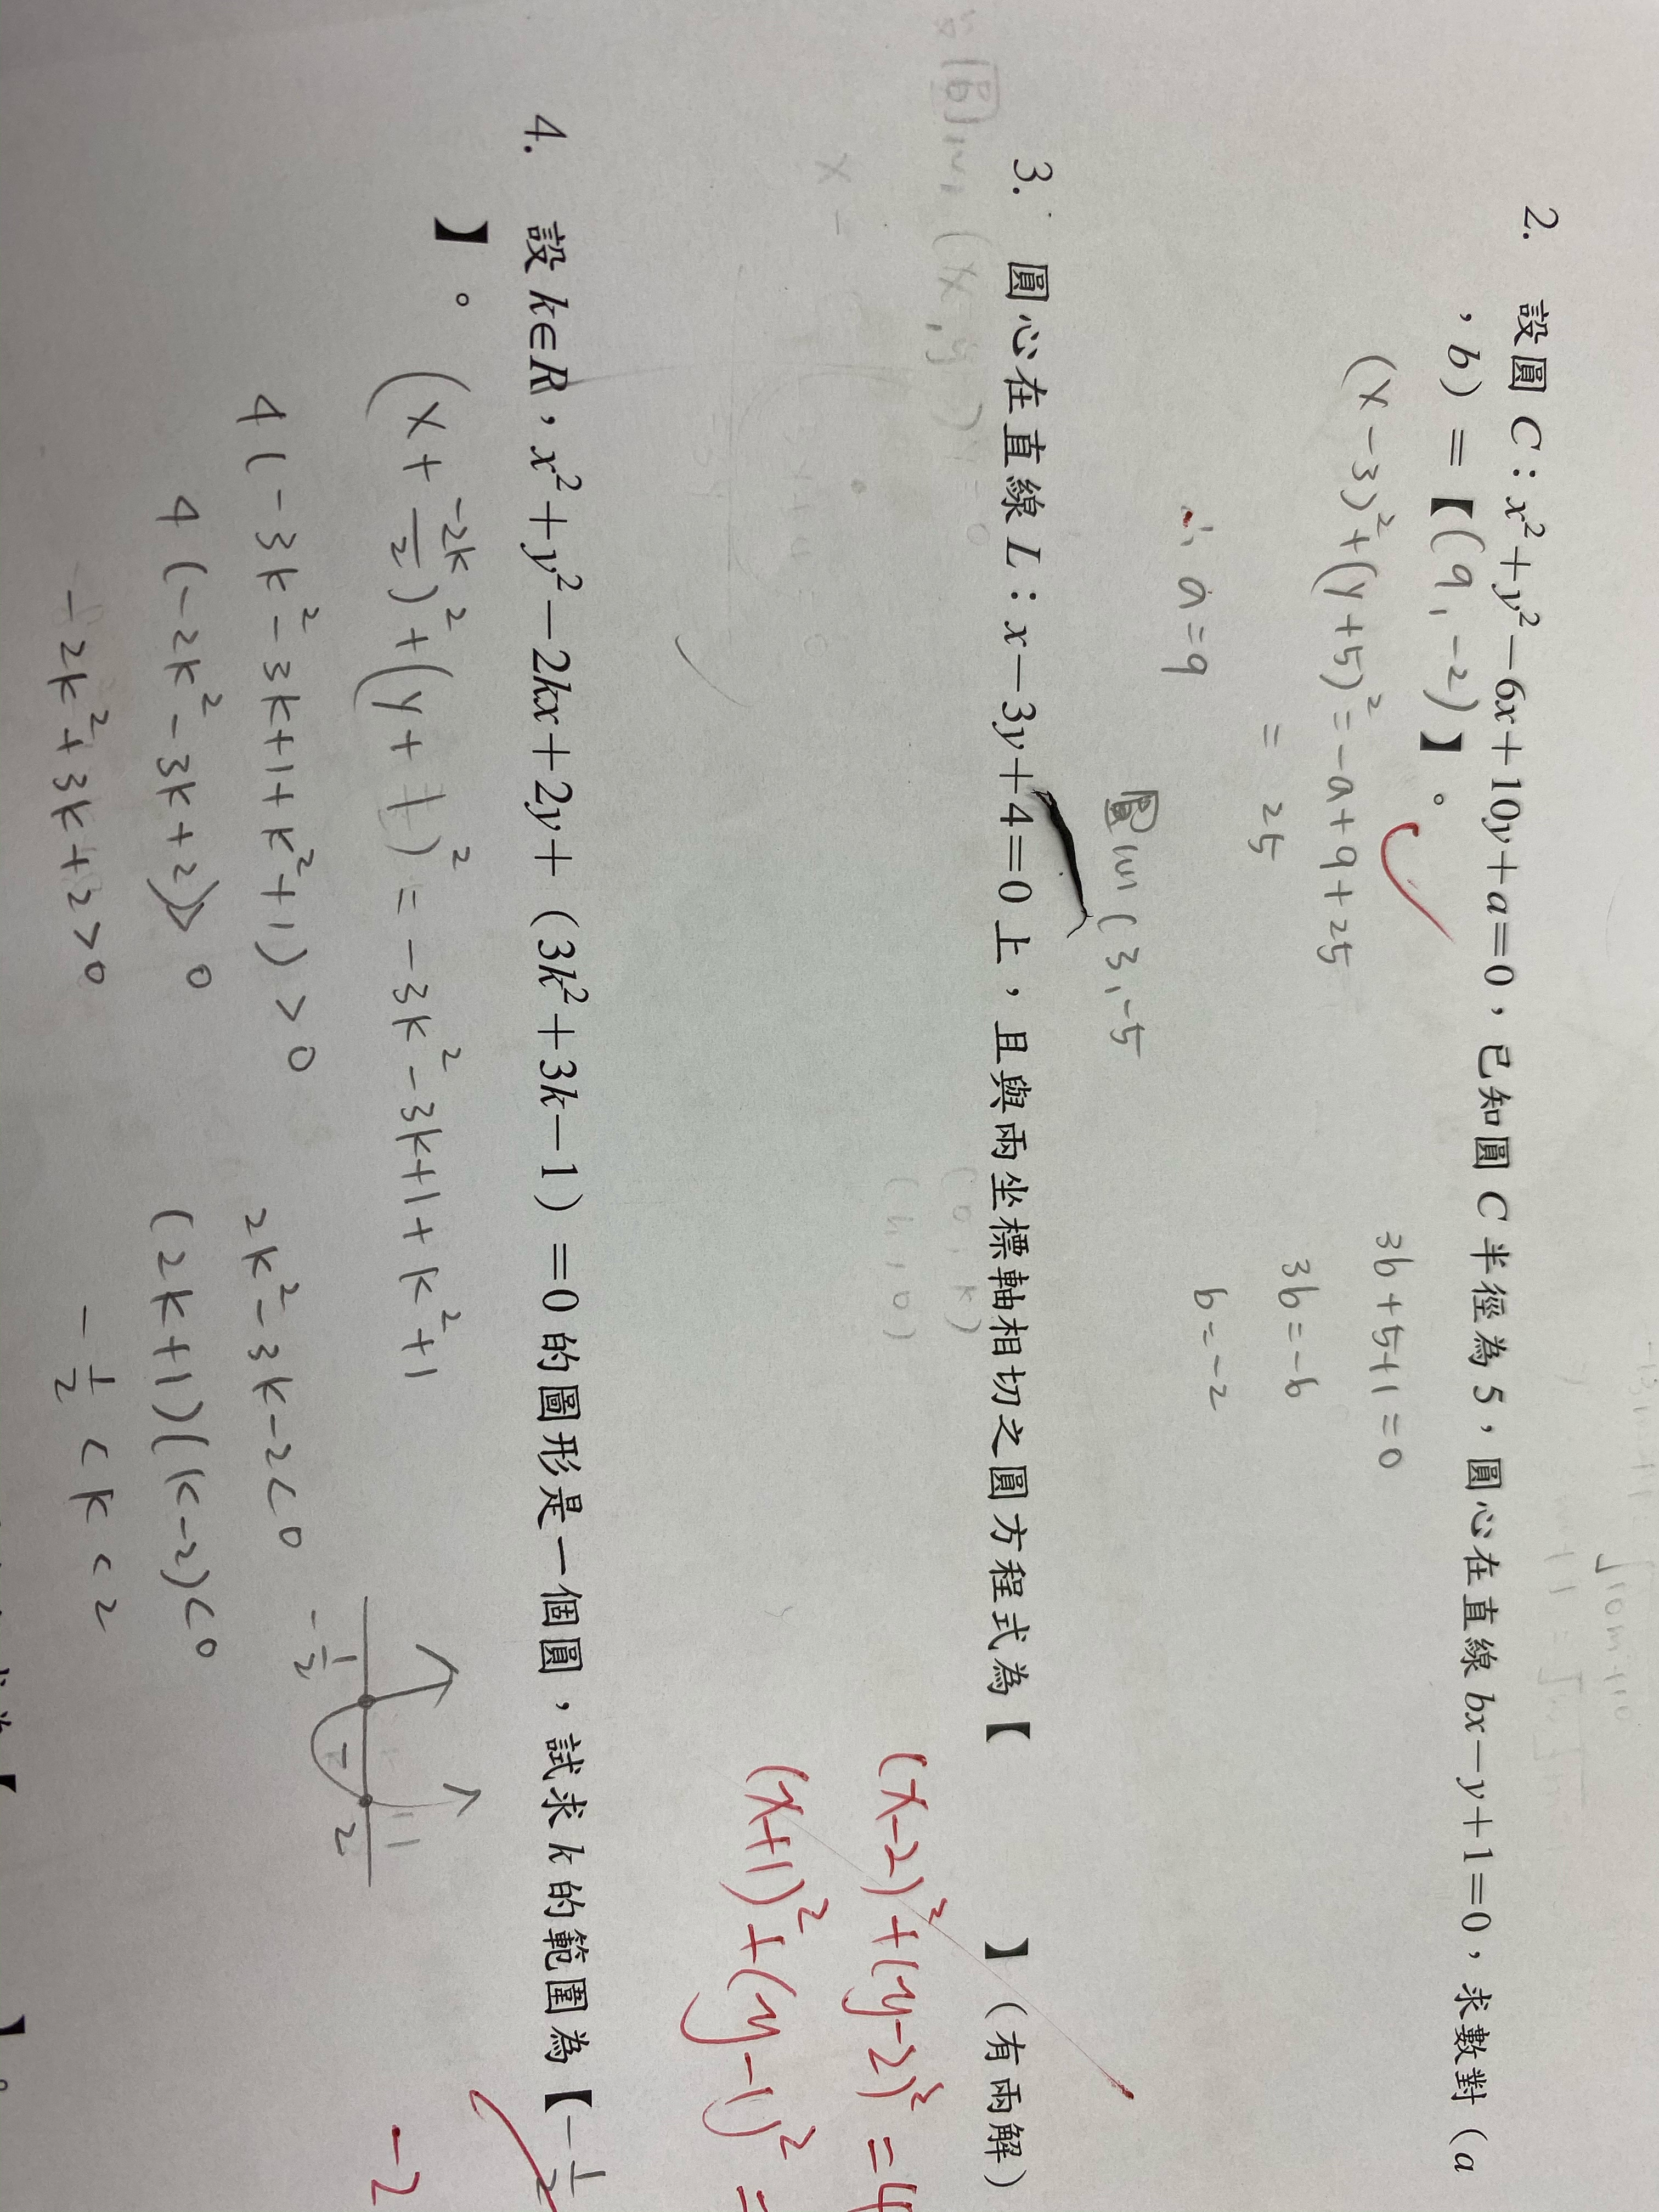 2. 設圓 C：x²＋y²－6x＋10y＋a＝0，已知圓 C 半徑為 5，圓心在直線 bx－y＋1＝0，求數對（a
，b）＝【(9,-2)】。
(x-3)²+(y+5)²=-a+9+25
= 25
∴ a=9
圓心(3,-5
3b+5+1=0
3b=-6
b=-2
3. 圓心在直線 L：x－3y＋4＝0 上，且與兩坐標軸相切之圓方程式為【 】（有兩解）
(x-2)²+(y-2)²=4
(x+1)²+(y-1)²=
4. 設 k∈R，x²＋y²－2kx＋2y＋（3k²＋3k－1）＝0 的圖形是一個圓，試求 k 的範圍為【-1/2
】。
-2
(x+-2k/2)²+(y+1)²=-3k²-3k+1+k²+1
4(-3k²-3k+1+k²+1)>0
4(-2k²-3k+2)>0
-2k²+3k+2>0
2k²-3k-2<0
(2k+1)(k-2)<0
-1/2<k<2
-1/2 2